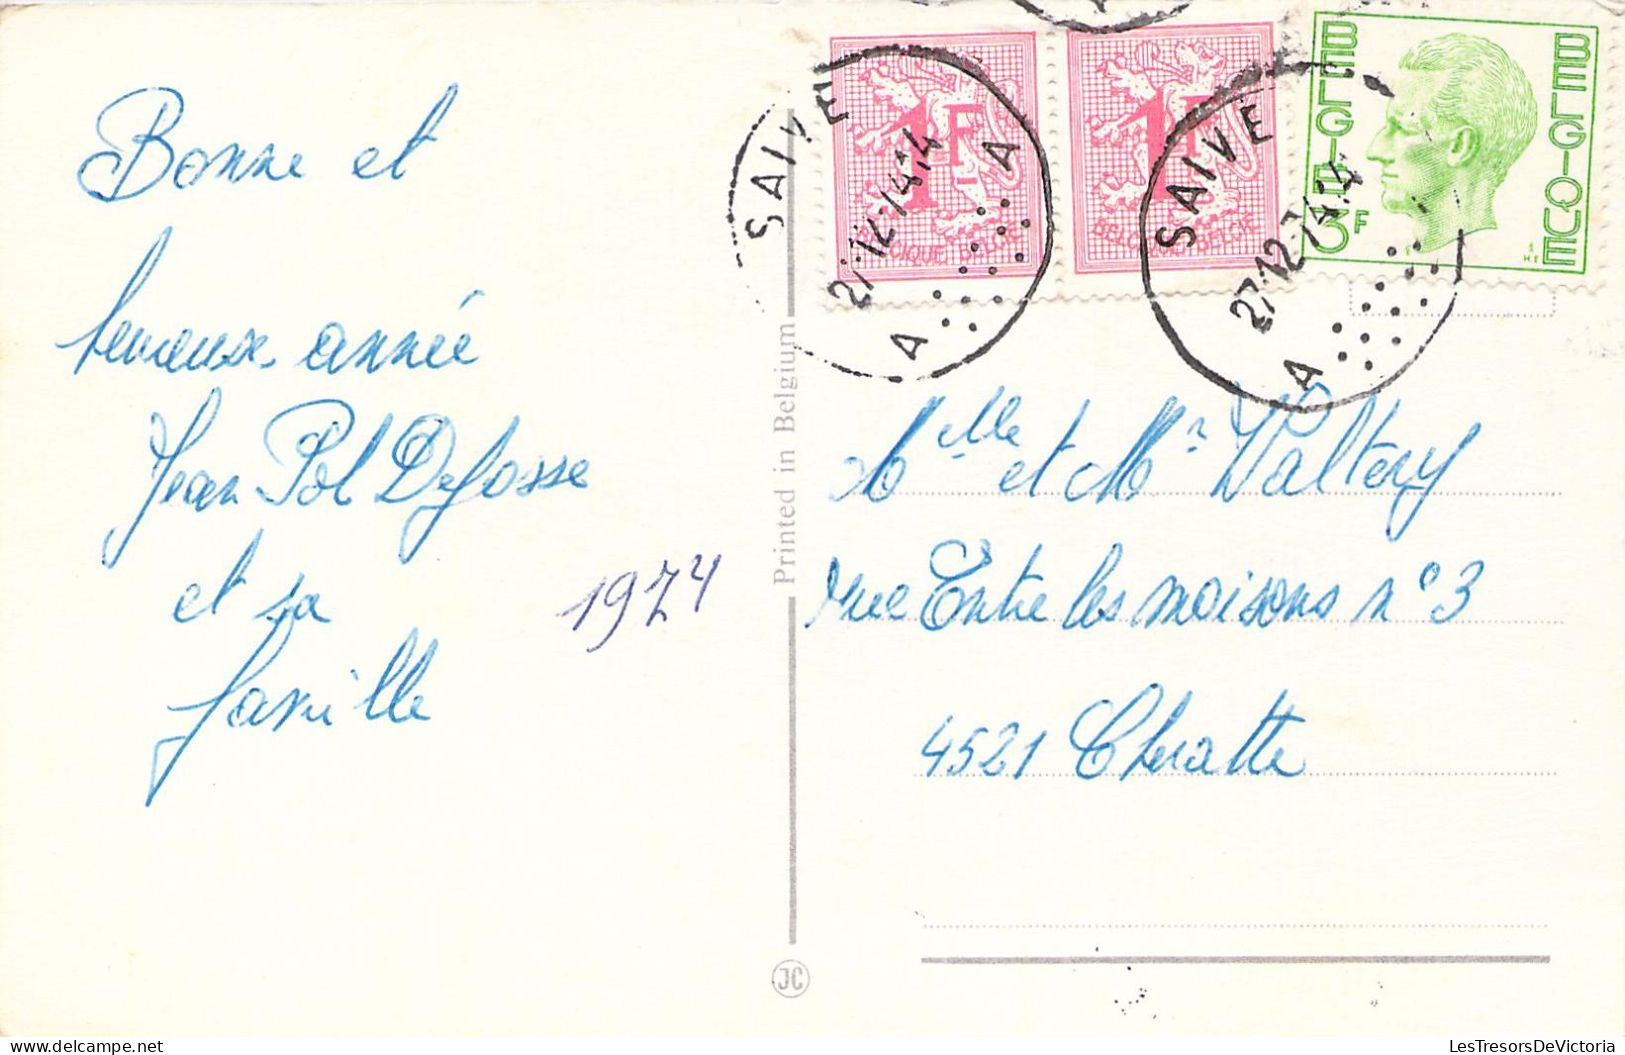 Bonne et
heureuse année
Jean Pol Defosse
et sa
famille
1974
Printed in Belgium
JC
SAIVE
A A
1F
BELGIQUE BELGIË
1F
BELGIQUE BELGIË
SAIVE
27-12-74-14
A
BELGIË
BELGIQUE
3F
Melle et Mr Waltery
rue Entre les maisons n° 3
4521 Cheratte
LesTresorsDeVictoria